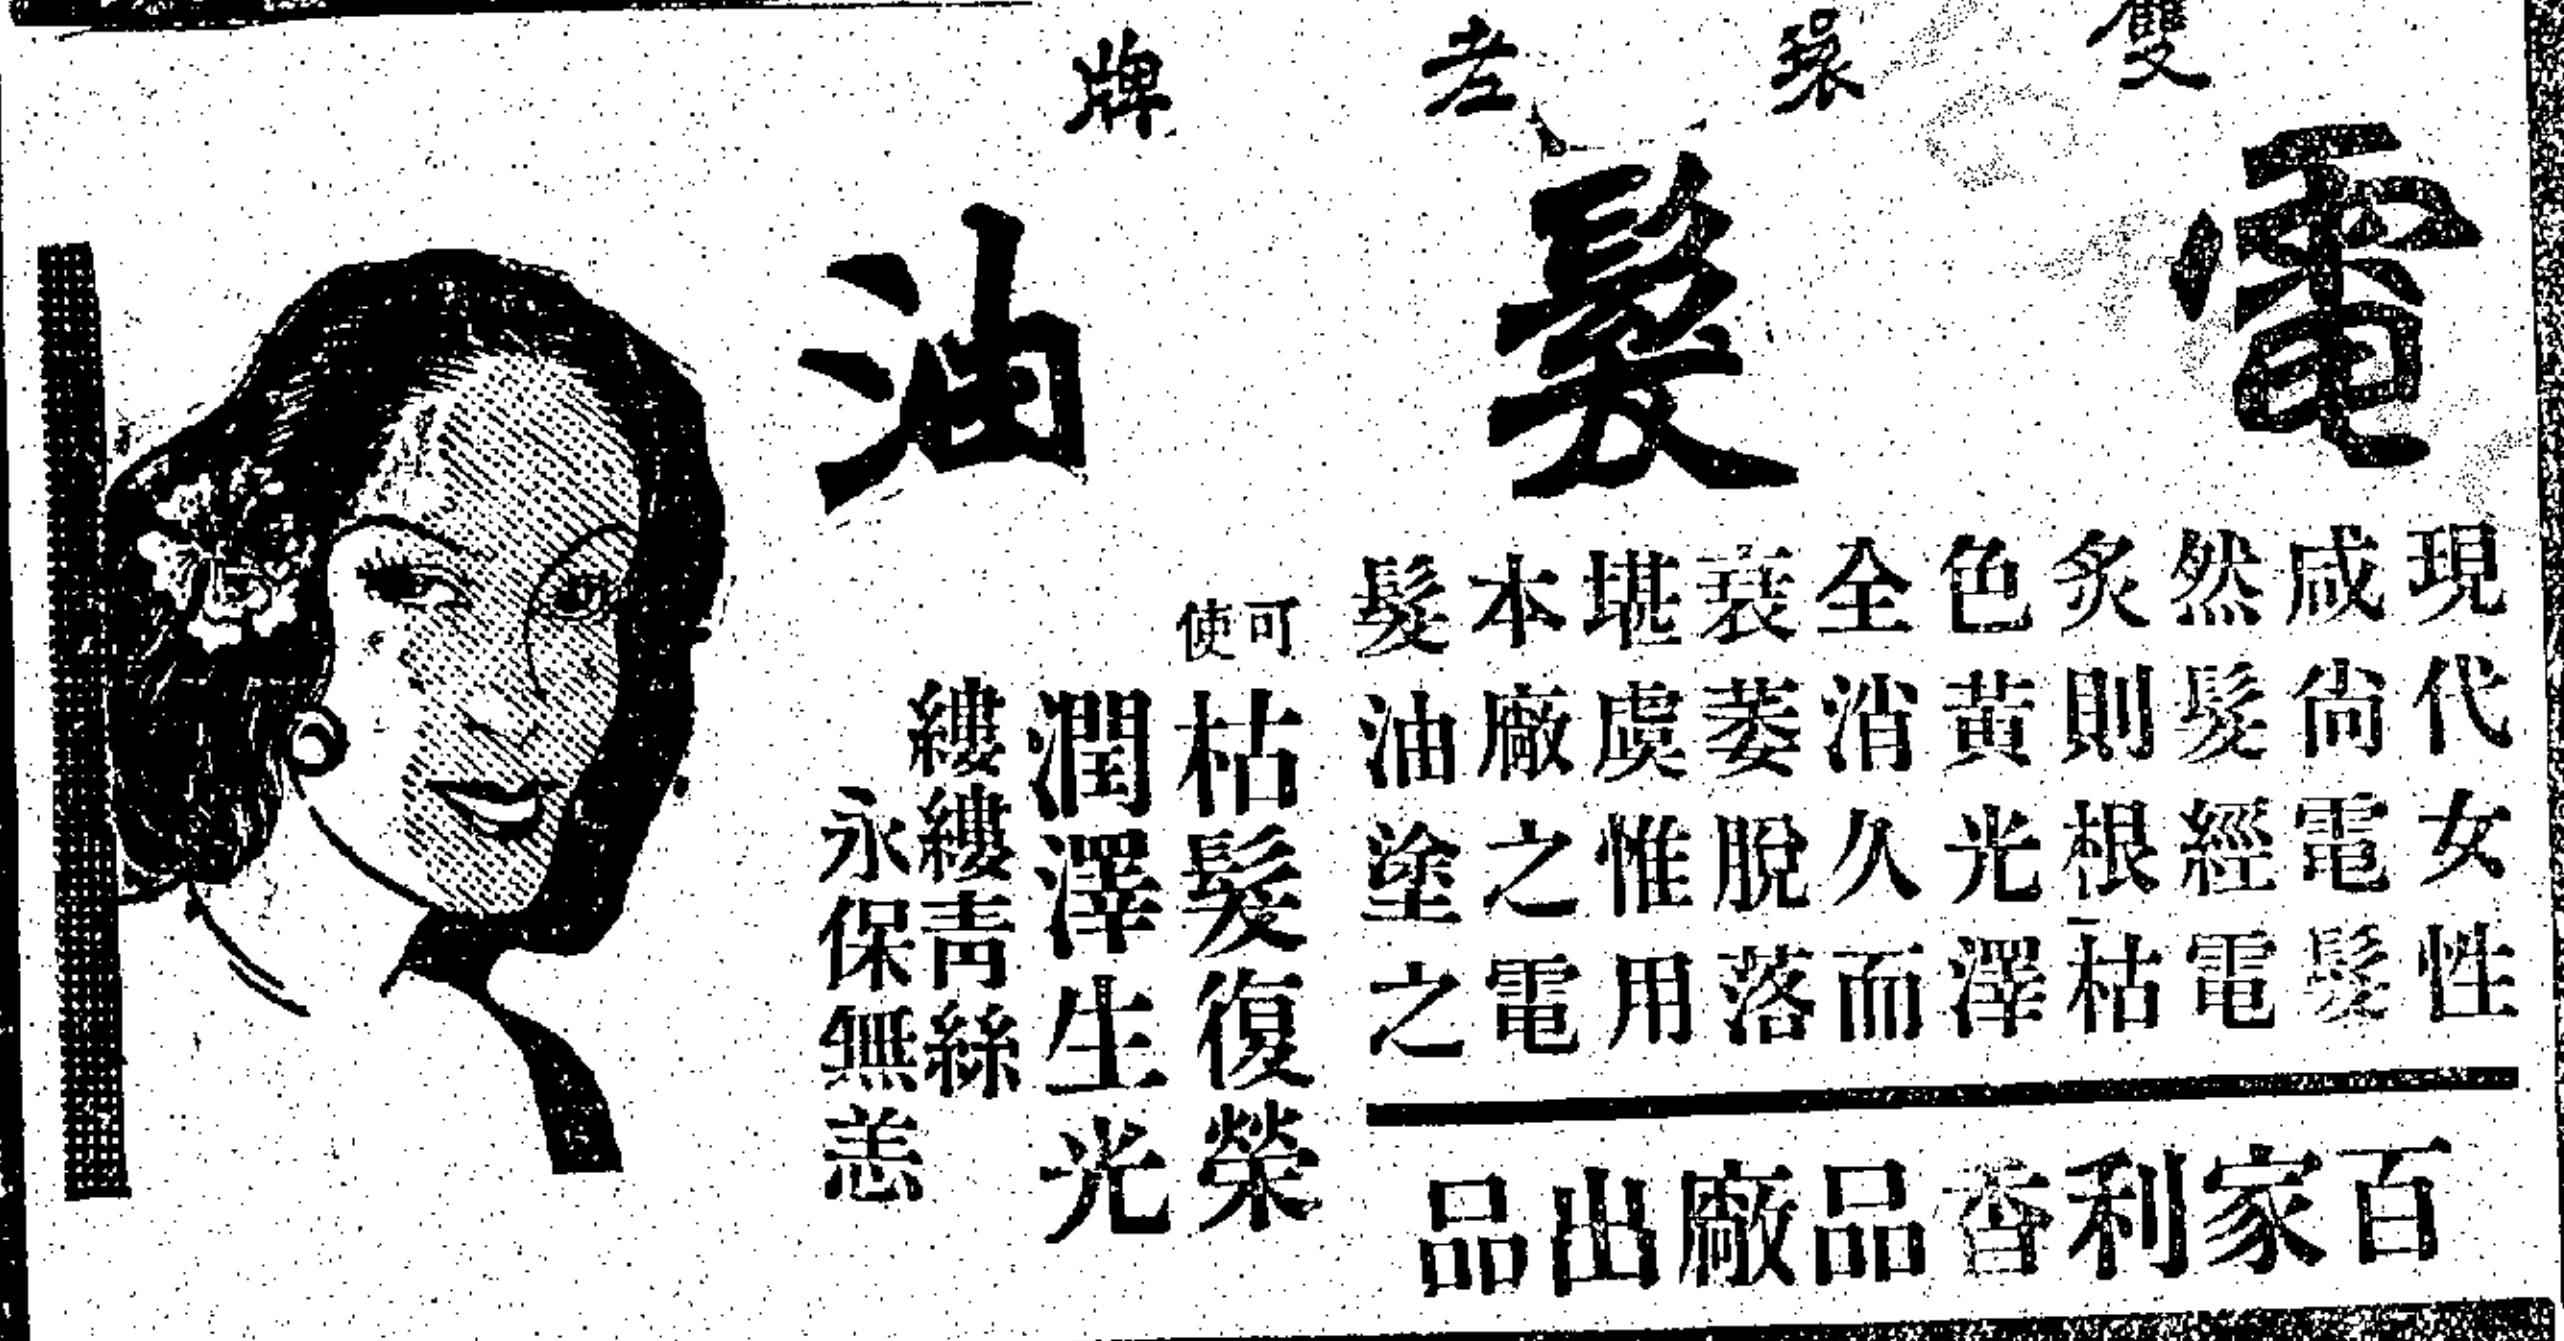 雙環老牌
電髮油
現代女性
咸尙電髮
然髮經電
炙則根枯
色黃光澤
全消久而
衰萎脫落
堪虞惟用
本廠之電
髮油塗之
可使
枯髮復榮
潤澤生光
縷縷靑絲
永保無恙
百家利香品廠出品